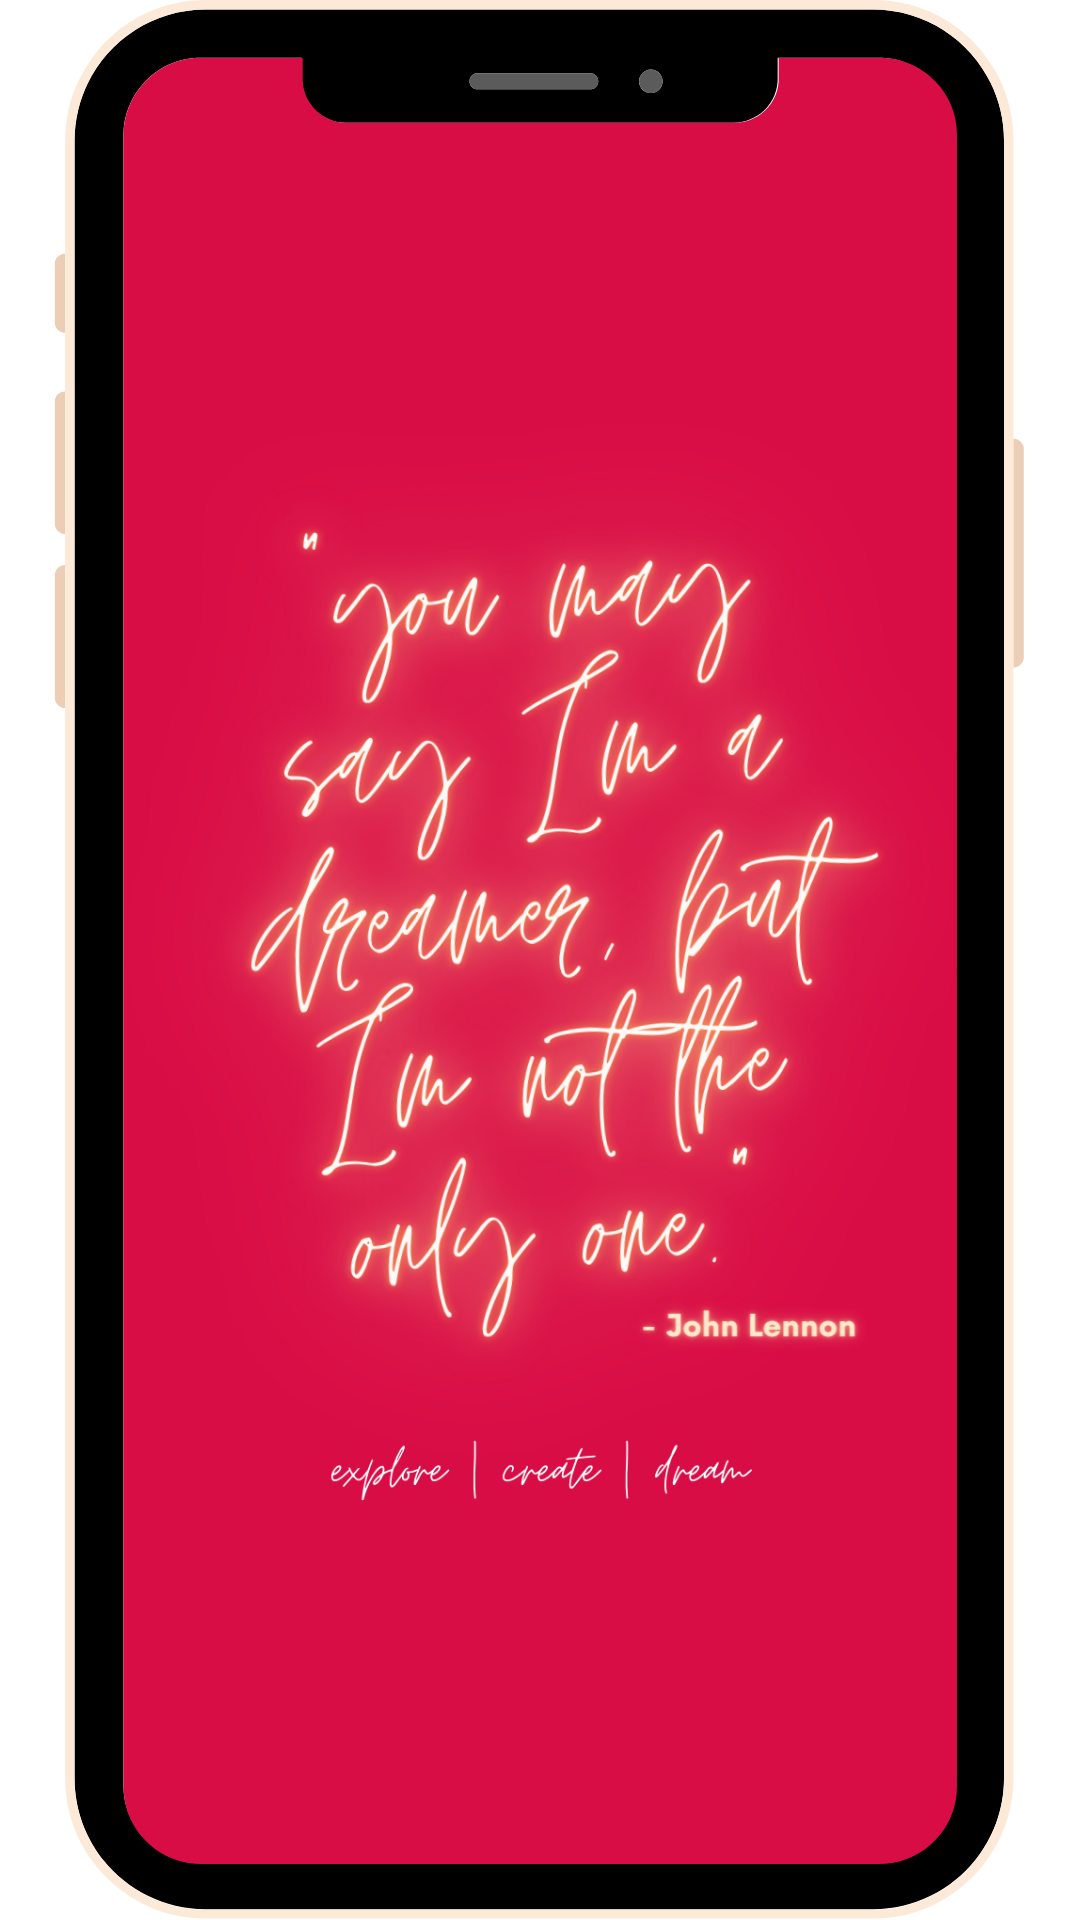 "you may
say Im a
dreamer, but
Im not the
only one."
- John Lennon
explore | create | dream